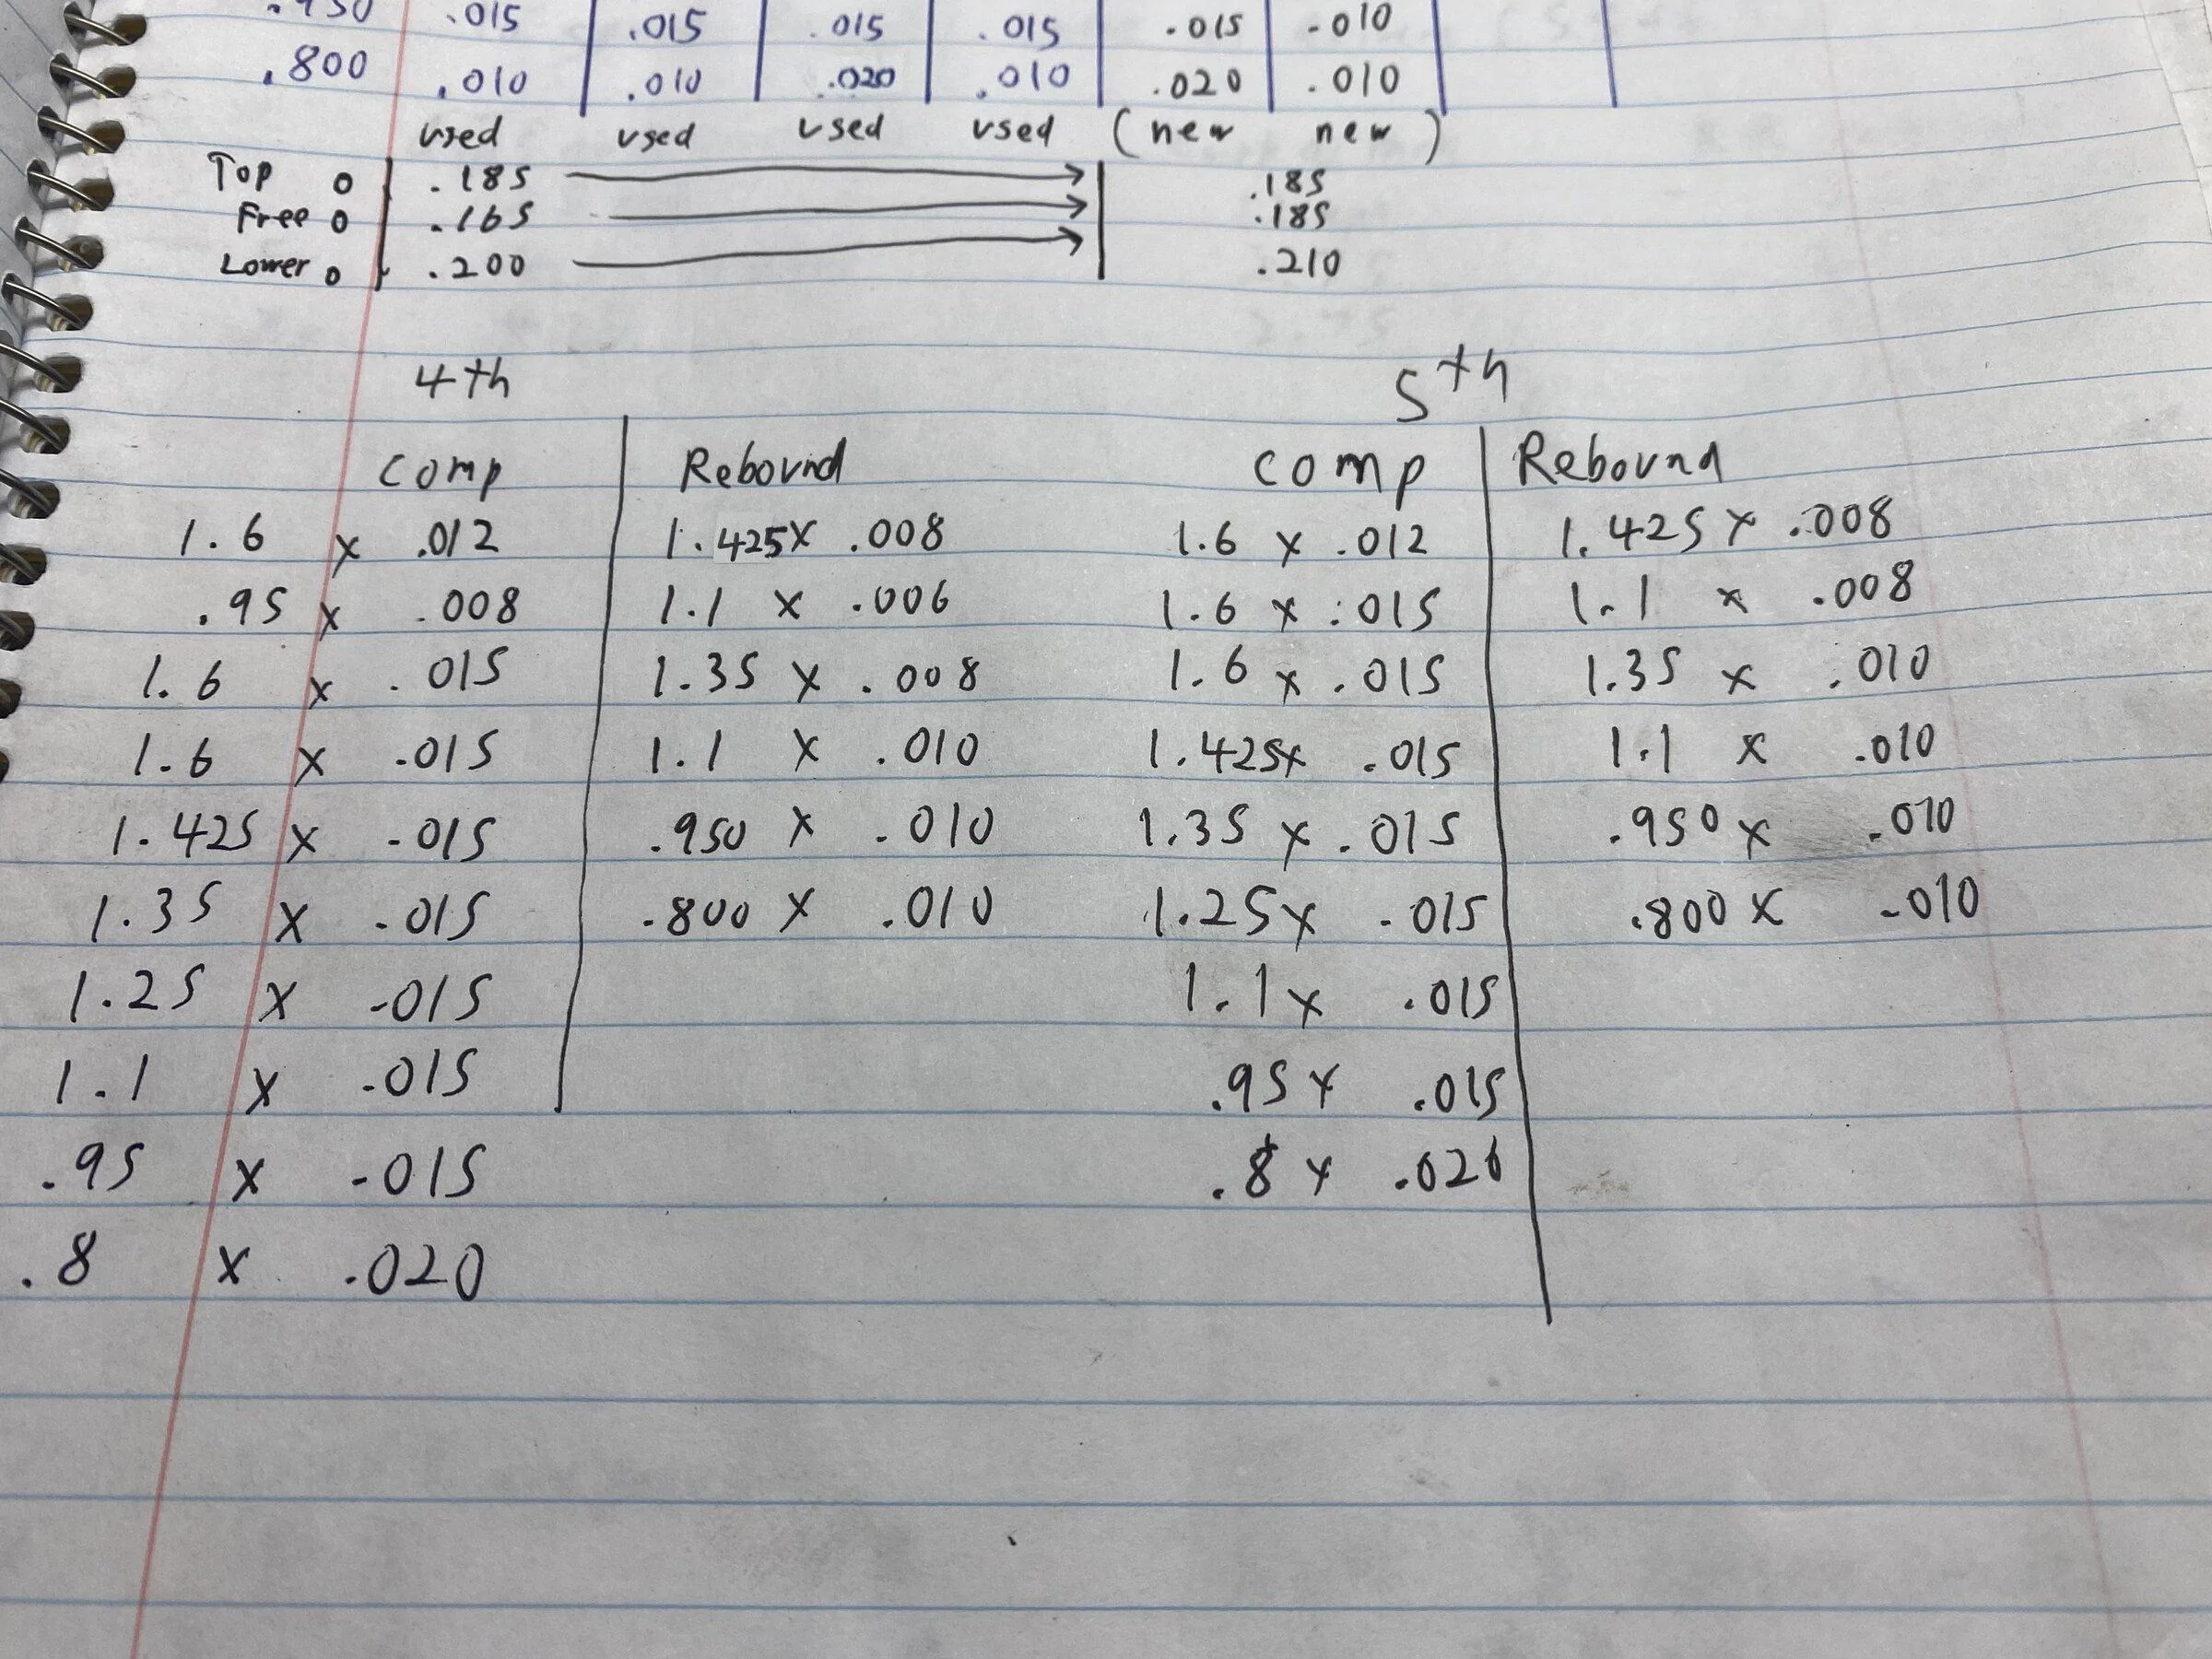 .950 .015 .015 .015 .015 .015 .010
.800 .010 .010 .020 .010 .020 .010
used used used used (new new)
Top o .185 .185
Free o .165 .185
Lower o .200 .210
4th 5th
Comp Rebound comp Rebound
1.6 x .012 1.425x .008 1.6 x .012 1.425 x .008
.95 x .008 1.1 x .006 1.6 x .015 1.1 x .008
1.6 x .015 1.35 x .008 1.6 x .015 1.35 x .010
1.6 x .015 1.1 x .010 1.425x .015 1.1 x .010
1.425 x .015 .950 x .010 1.35 x .015 .950 x .010
1.35 x .015 .800 x .010 1.25x .015 .800 x .010
1.25 x .015 1.1x .015
1.1 x .015 .95x .015
.95 x .015 .8 x .020
.8 x .020